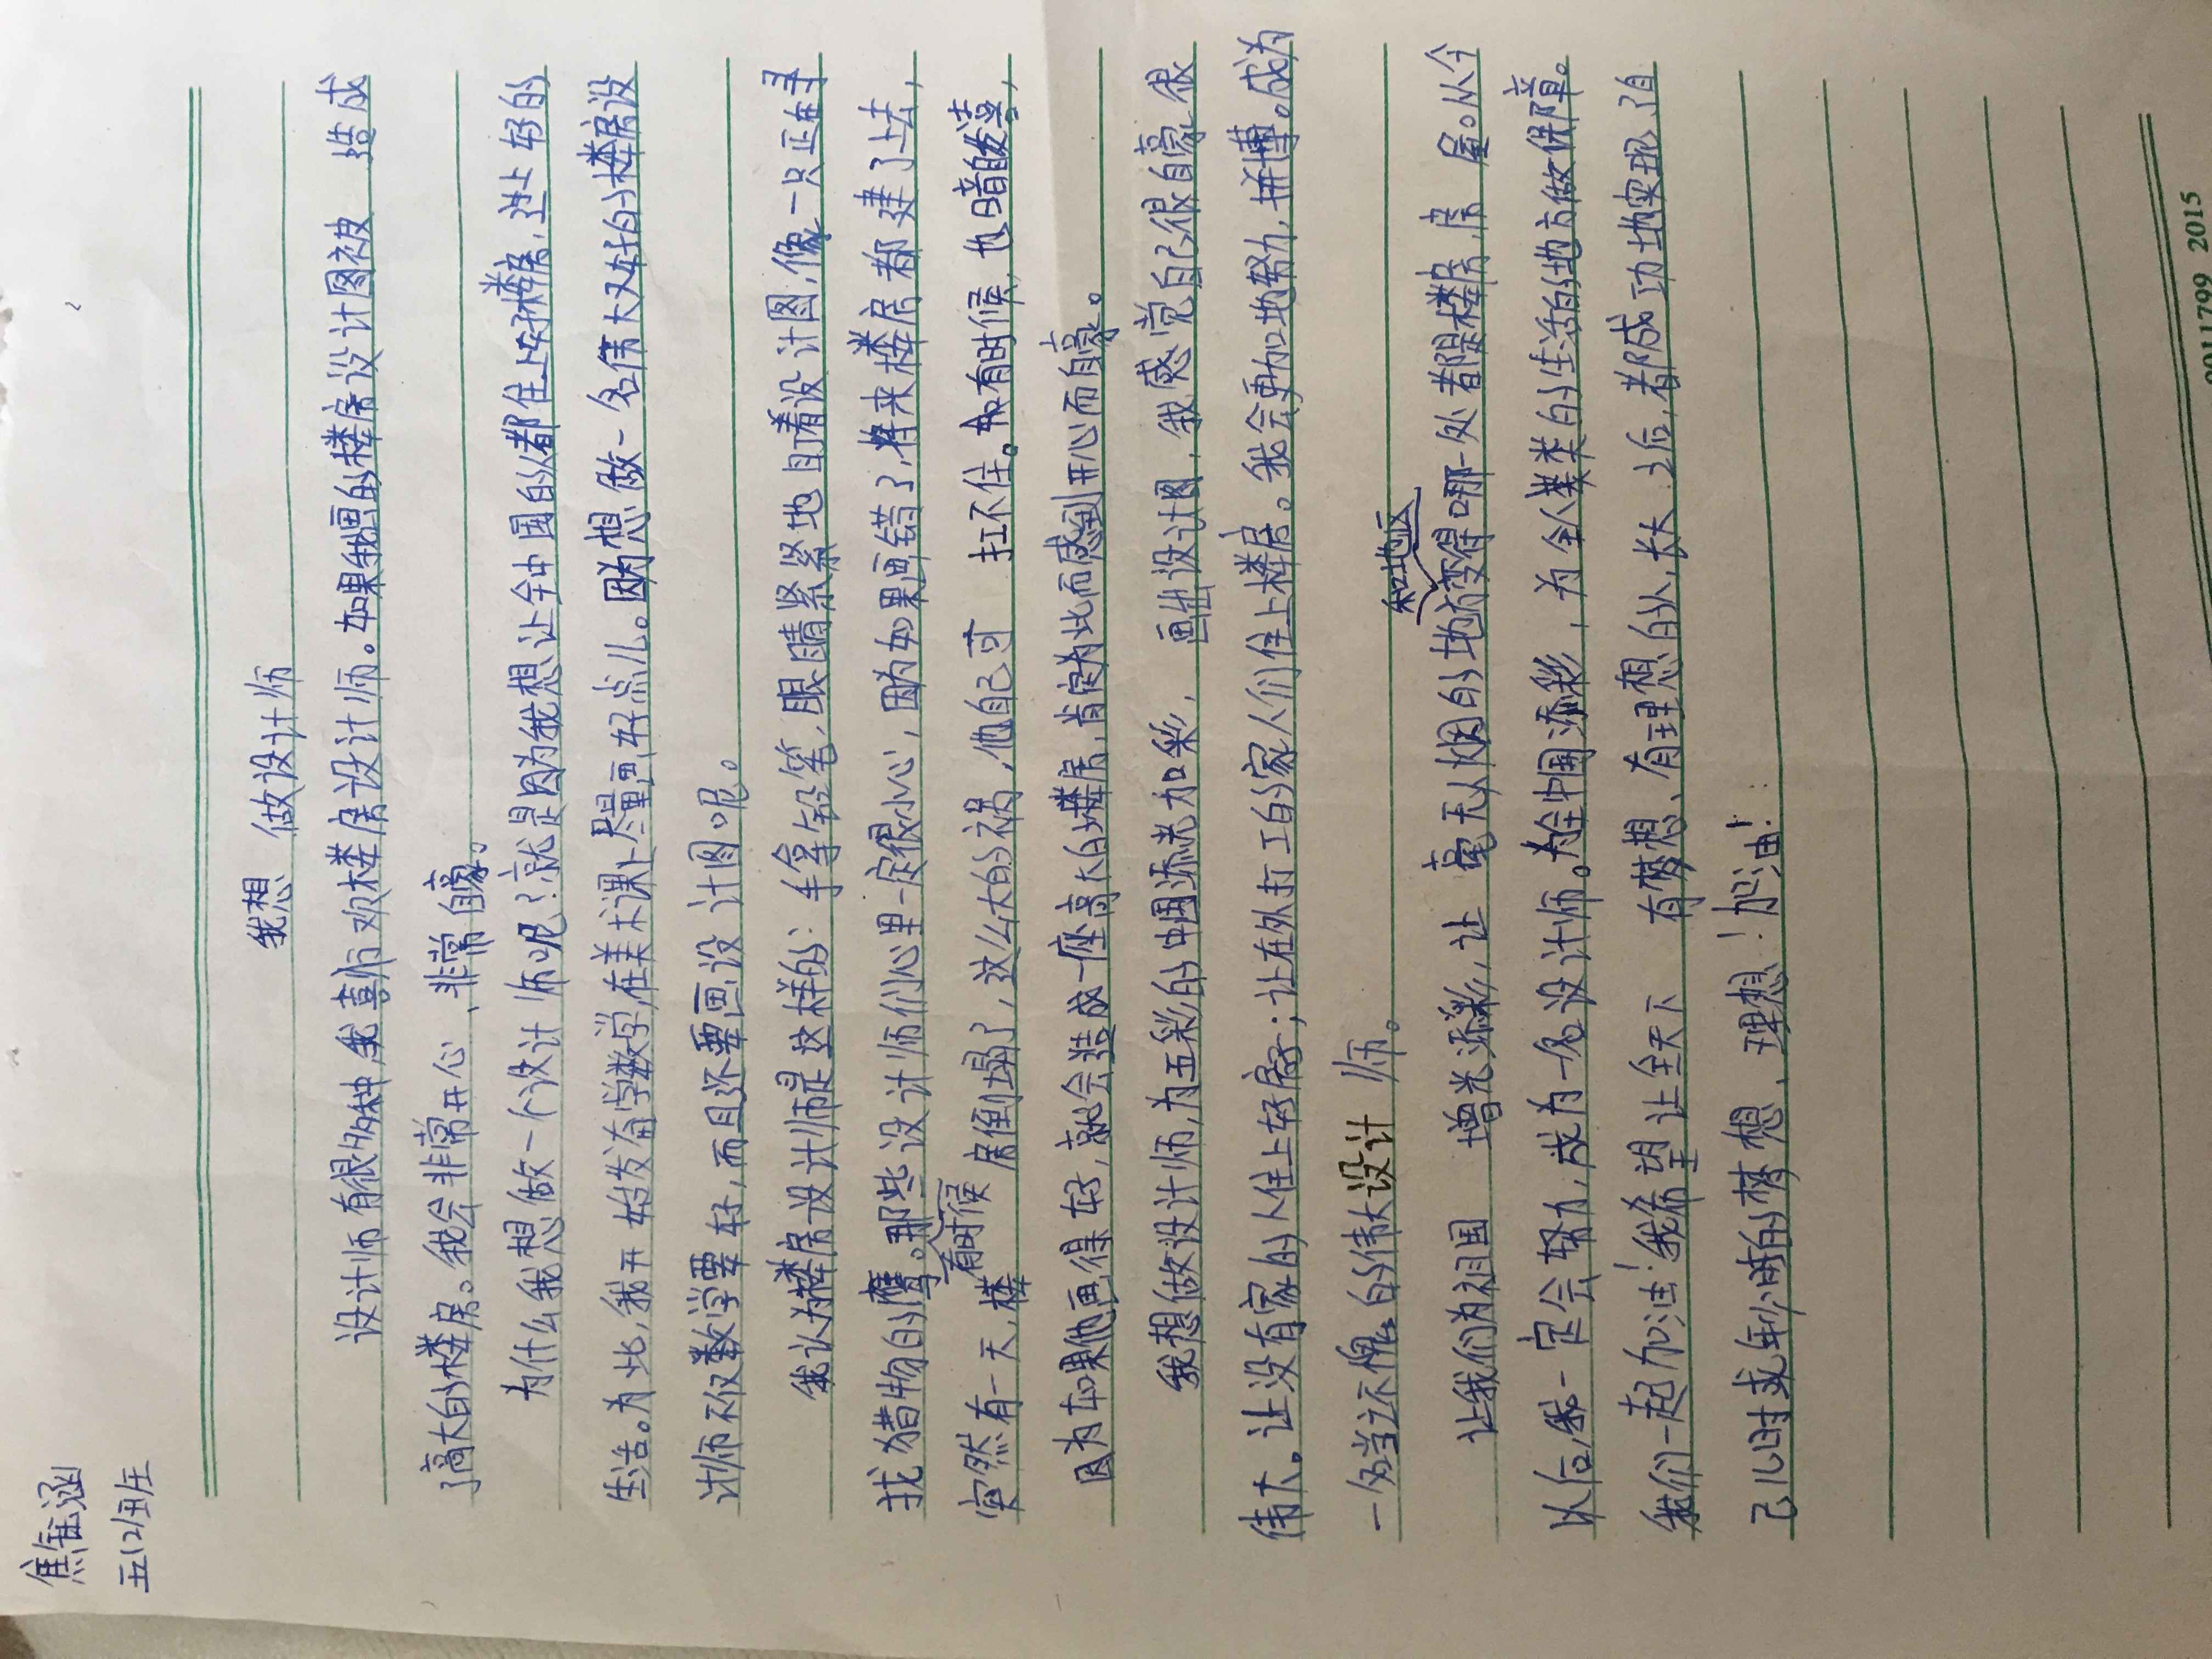 焦钰涵
五(2)班
我想 做设计师
设计师有很多种,我喜欢楼房设计师。如果我画的楼房设计图被 造成
了高大的楼房。我会非常开心、非常自豪。
为什么我想做一个设计师呢?就是因为我想让全中国的人都住上好楼房,过上好的
生活。为此,我开始发奋学数学,在美术课上尽量画好点儿。因为想做一名伟大又好的楼房设
计师不仅数学要好,而且还要画设计图呢。
我认为楼房设计师是这样的:手拿铅笔,眼睛紧紧地盯着设计图,像一只正在寻
找猎物的鹰。那些设计师们心里一定很小心,因为如果画错了,将来楼房都建了上去,
有时候
突然有一天,楼房倒塌了,这么大的祸,他自己可 扛不住。如有时候,也暗自发喜,
因为如果他画得好,就会造成一座高大的楼房,肯定为此而感到开心而自豪。
我想做设计师,为五彩的中国添光加彩, 画出设计图,我感觉自己很自豪很
伟大。让没有家的人住上好房子;让在外打工的家人们住上楼房。我会更加地努力,拼搏。成为
一名当之不愧的伟大设计师。
和地区
让我们为祖国 增光添彩,让 毫无人烟的地方变得哪一处都是楼房,房屋。从今
以后,我一定会努力,成为一名设计师。为全中国添彩,为全人类的生活的地方做保障。
我们一起加油!我希望让全天下 有梦想、有理想的人,长大之后,都成功地实现了自
己儿时或年少时的梦想、理想!加油!
2011799 2015